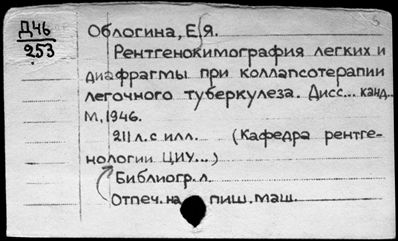 Д46
253
Облогина, Е.Я.
Рентгенокимография легких и
диафрагмы при коллапсотерапии
легочного туберкулеза. Дисс... канд.
М, 1946.
211 л. с илл. (Кафедра рентге-
нологии ЦИУ...)
Библиогр. л.
Отпеч. на пиш. маш.